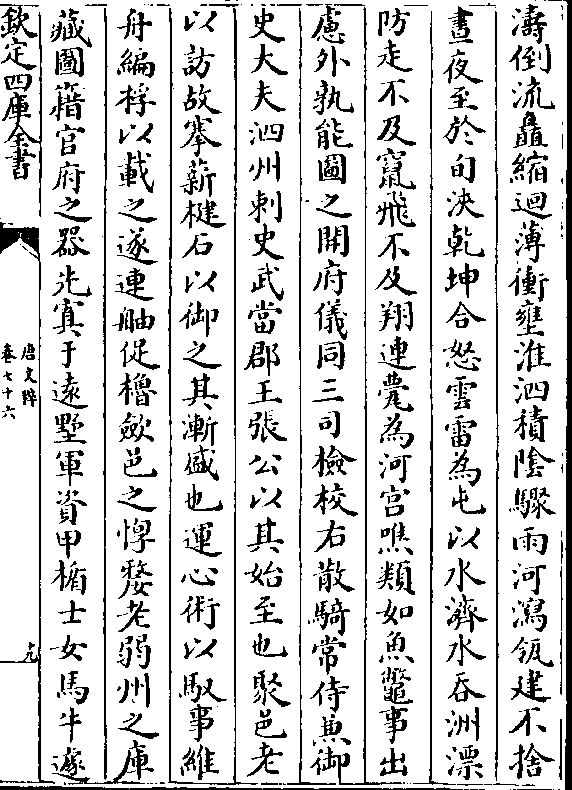 濤倒流矗縮迴薄衝壅淮泗積陰驟雨河瀉瓴建不捨
晝夜至於旬浹乾坤合怒雲雷為屯以水濟水吞洲漂
防走不及竄飛不及翔連甍為河宮噍類如魚鼈事出
慮外孰能圖之開府儀同三司檢校右散騎常侍兼御
史大夫泗州刺史武當郡王張公以其始至也聚邑老
以訪故搴薪楗石以御之其漸盛也運心術以馭事維
舟編桴以載之遂連舳促櫓斂邑之惸嫠老弱州之庫
藏圖籍官府之器先寘于遠墅軍資甲楯士女馬牛遽
欽定四庫全書
唐文粹
卷七十六
九